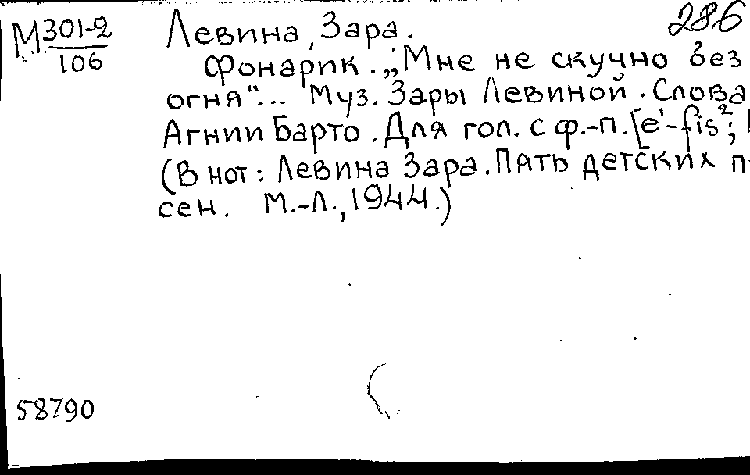 286
М301-2
106
Левина, Зара.
Фонарик. „Мне не скучно без
огня"... Муз. Зары Левиной. Слова
Агнии Барто. Для гол. с ф.-п. [e'-fis²;
(В нот: Левина Зара. Пять детских п
сен. М.-Л., 1944.)
58790